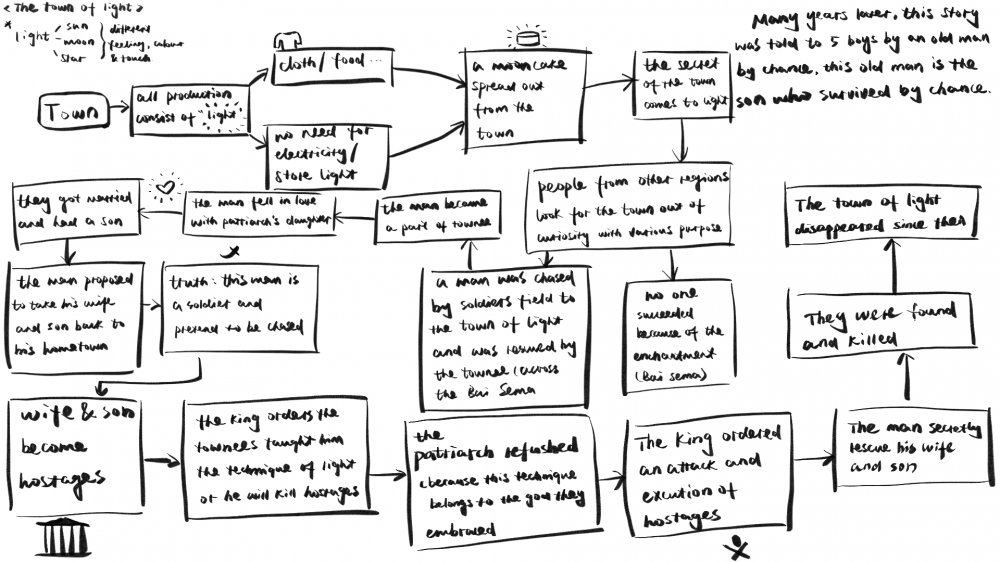 < The town of light >
* light
sun
moon
star
different
feeling, colour
& touch
Town
all production
consist of "light"
cloth / food ...
no need for
electricity /
store light
a mooncake
spread out
from the
town
the secret
of the town
comes to light
Many years later, this story
was told to 5 boys by an old man
by chance, this old man is the
son who survived by chance.
people from other regions
look for the town out of
curiosity with various purpose
no one
succeeded
because of the
enchantment
(Bai Sema)
a man was chased
by soldiers field to
the town of light
and was resuued by
the townee (across
the Bai Sema
the man became
a part of townee
the man fell in love
with patriarch's daughter
they got married
and had a son
the man proposed
to take his wife
and son back to
his hometown
truth: this man is
a soldier and
pretend to be chased
wife & son
become
hostages
the king orders the
townees taught him
the technique of light
or he will kill hostages
the
patriarch refushed
because this technique
belongs to the god they
embraced
The King ordered
an attack and
excution of
hostages
The man secretly
rescue his wife
and son
They were found
and killed
The town of light
disappeared since then